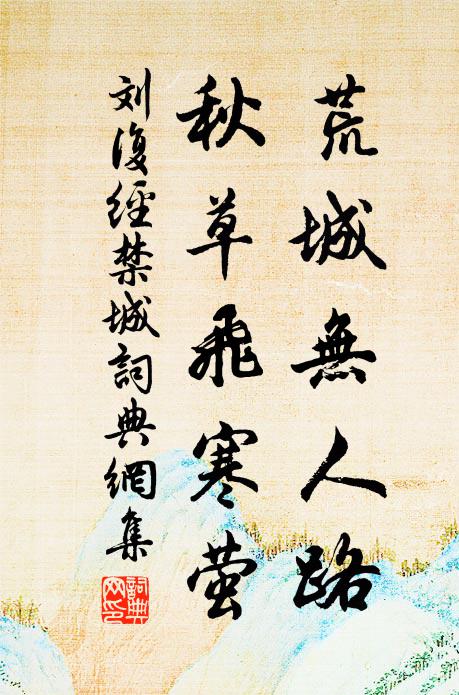 荒城無人路
秋草飛寒萤
刘復經禁城詞典網集
詞典网印